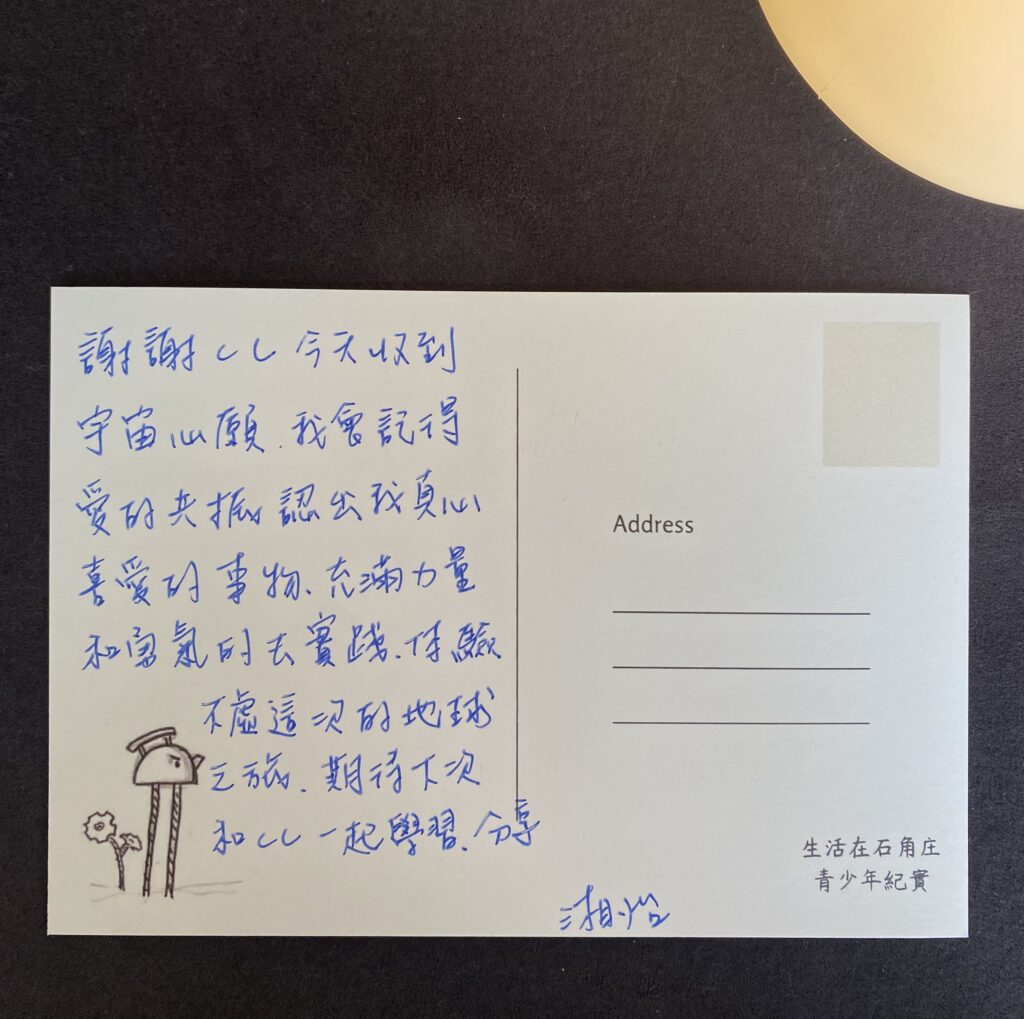 謝謝CC今天收到
宇宙心願.我會記得
愛的共振認出我真心
喜愛的事物、充滿力量
和勇氣的去實踐、体驗
不虛這次的地球
之旅.期待下次
和CC一起學習、分享
湘怡
Address
生活在石角庄
青少年紀實